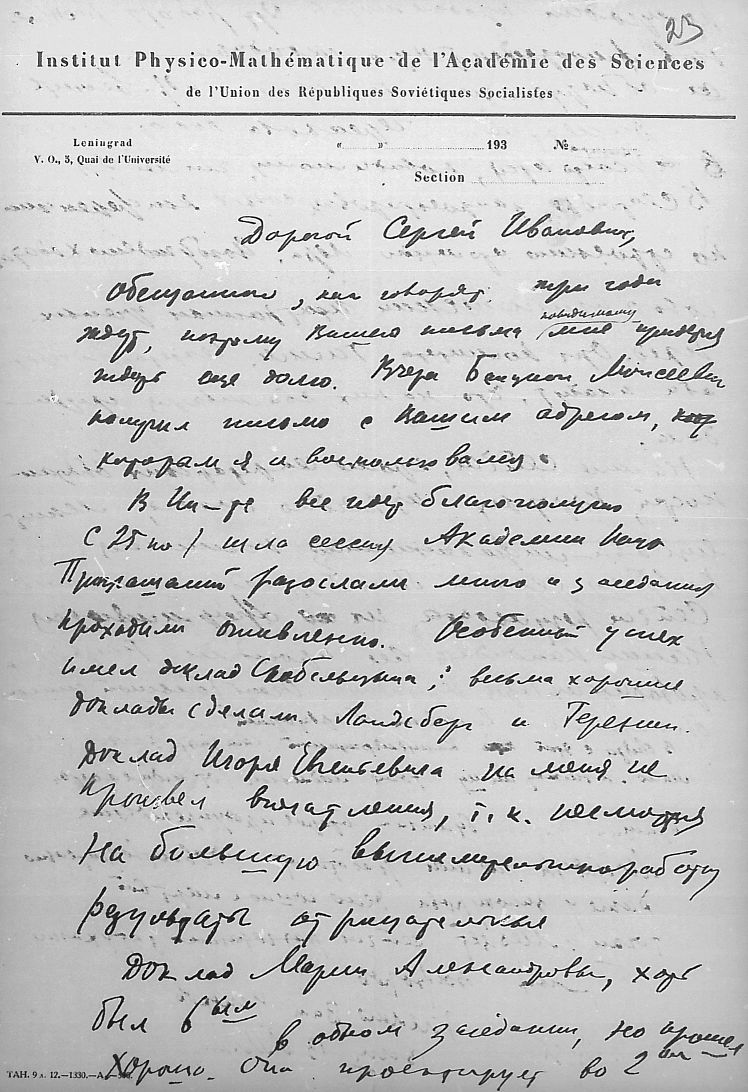 23
Institut Physico-Mathématique de l'Académie des Sciences
de l'Union des Républiques Soviétiques Socialistes
Leningrad
V. O., 3, Quai de l'Université
« » 193 №
Section
Дорогой Сергей Иванович,
Обещанного, как говорят три года
ждут, поэтому Вашего письма мне придется
ждать еще долго. Вчера Бенцион Моисеевич
получил письмо с Вашим адресом,
которым я и воспользовался.
В Ин-те все идет благополучно
С 25 по 1 шла сессия Академии Наук
Приглашений разослали много и заседания
проходили оживленно. Особенный успех
имел доклад Скобельцына; весьма хорошие
доклады сделали Ландсберг и Теренин.
Доклад Игоря Евгеньевича на меня не
произвел впечатления, т. к. несмотря
на большую вычислительную работу
результаты отрицательные
Доклад Марии Александровны, хоть
был 6ым в одном заседании, но прошел
хорошо. Она проектирует во 2ой
ТАН. 9 л. 12.—1330.—А